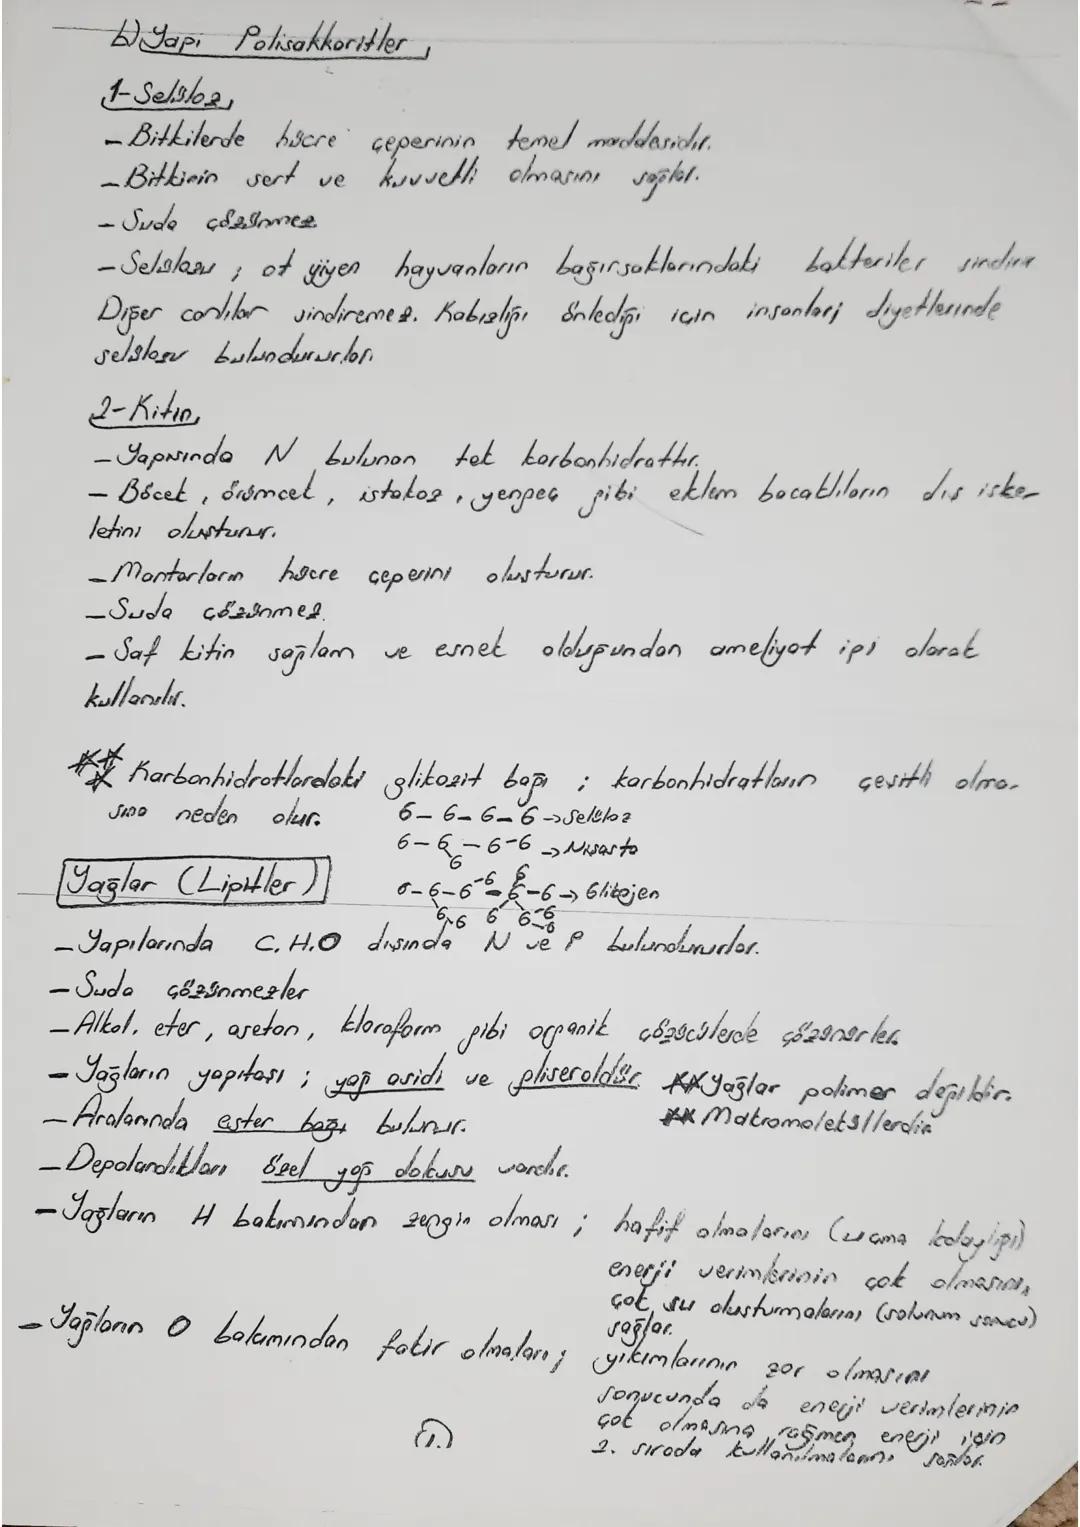 b) Yapı Polisakkaritler
1-Selüloz
- Bitkilerde hücre çeperinin temel maddesidir.
- Bitkinin sert ve kuvvetli olmasını sağlar.
- Suda çözünmez
- Selülozu ; ot yiyen hayvanların bağırsaklarındaki bakteriler sindirir
Diğer canlılar sindiremez. Kabızlığı önlediği için insanlar; diyetlerinde
selülozu bulundururlar.
2-Kitin
- Yapısında N bulunan tek karbonhidrattır.
- Böcek, örümcek, istakoz, yengeç gibi eklem bacaklıların dış iske-
letini oluşturur.
- Mantarların hücre çeperini oluşturur.
- Suda çözünmez.
- Saf kitin sağlam ve esnek olduğundan ameliyat ipi olarak
kullanılır.
*** Karbonhidratlardaki glikozit bağı ; karbonhidratların çeşitli olma-
sına neden olur.
6-6-6-6 → Selüloz
6-6-6-6 → Nişasta
6
6-6-6-6-6-6 → Glikojen
Yağlar (Lipitler)
- Yapılarında C.H.O dışında N ve P bulundururlar.
- Suda çözünmezler
- Alkol, eter, aseton, kloroform gibi organik çözücülerde çözünürler.
- Yağların yapıtaşı ; yağ asidi ve gliseroldür. ** Yağlar polimer değildir.
- Aralarında ester bağı bulunur. ** Makromoleküllerdir
- Depolandıkları özel yağ dokusu vardır.
- Yağların H bakımından zengin olması ; hafif olmalarını (uçma kolaylığı)
enerji verimlerinin çok olmasını,
çok su oluşturmalarını (solunum sonucu)
sağlar.
- Yağların O bakımından fakir olmaları ; yıkımlarının zor olmasını
sonucunda da enerji verimlerinin
çok olmasına rağmen enerji için
2. sırada kullanılmalarını sağlar.
1.